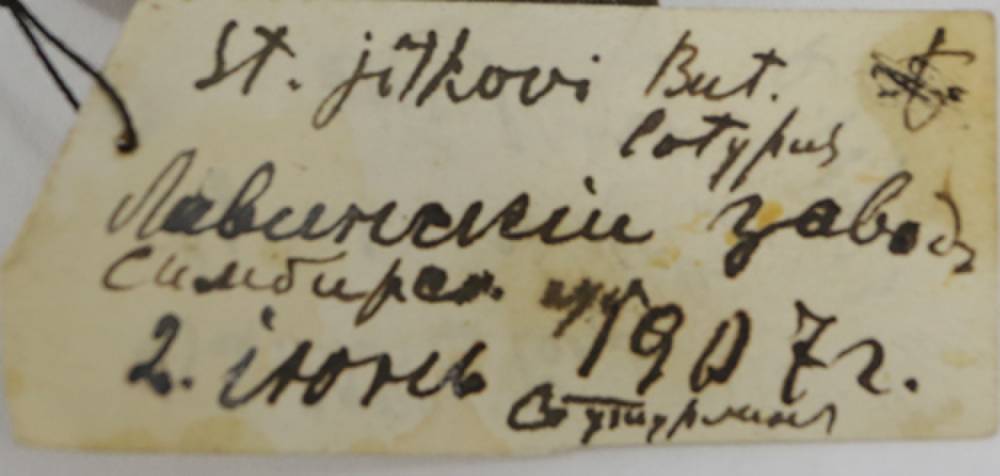 St. jitkovi But.
Cotypus
Лавинскiи заводъ
Симбирск. губ
2. iюнь 1907 г.
С. Бутурлинъ